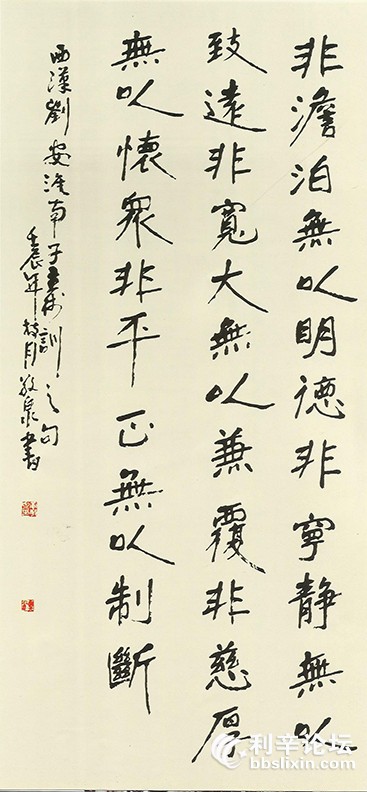 非澹泊無以明德非寧静無以
致遠非寬大無以兼覆非慈厚
無以懷眾非平正無以制斷
西漢劉安淮南子主術訓之句
壬辰年 月敬泉書
利辛论坛
bbslixin.com